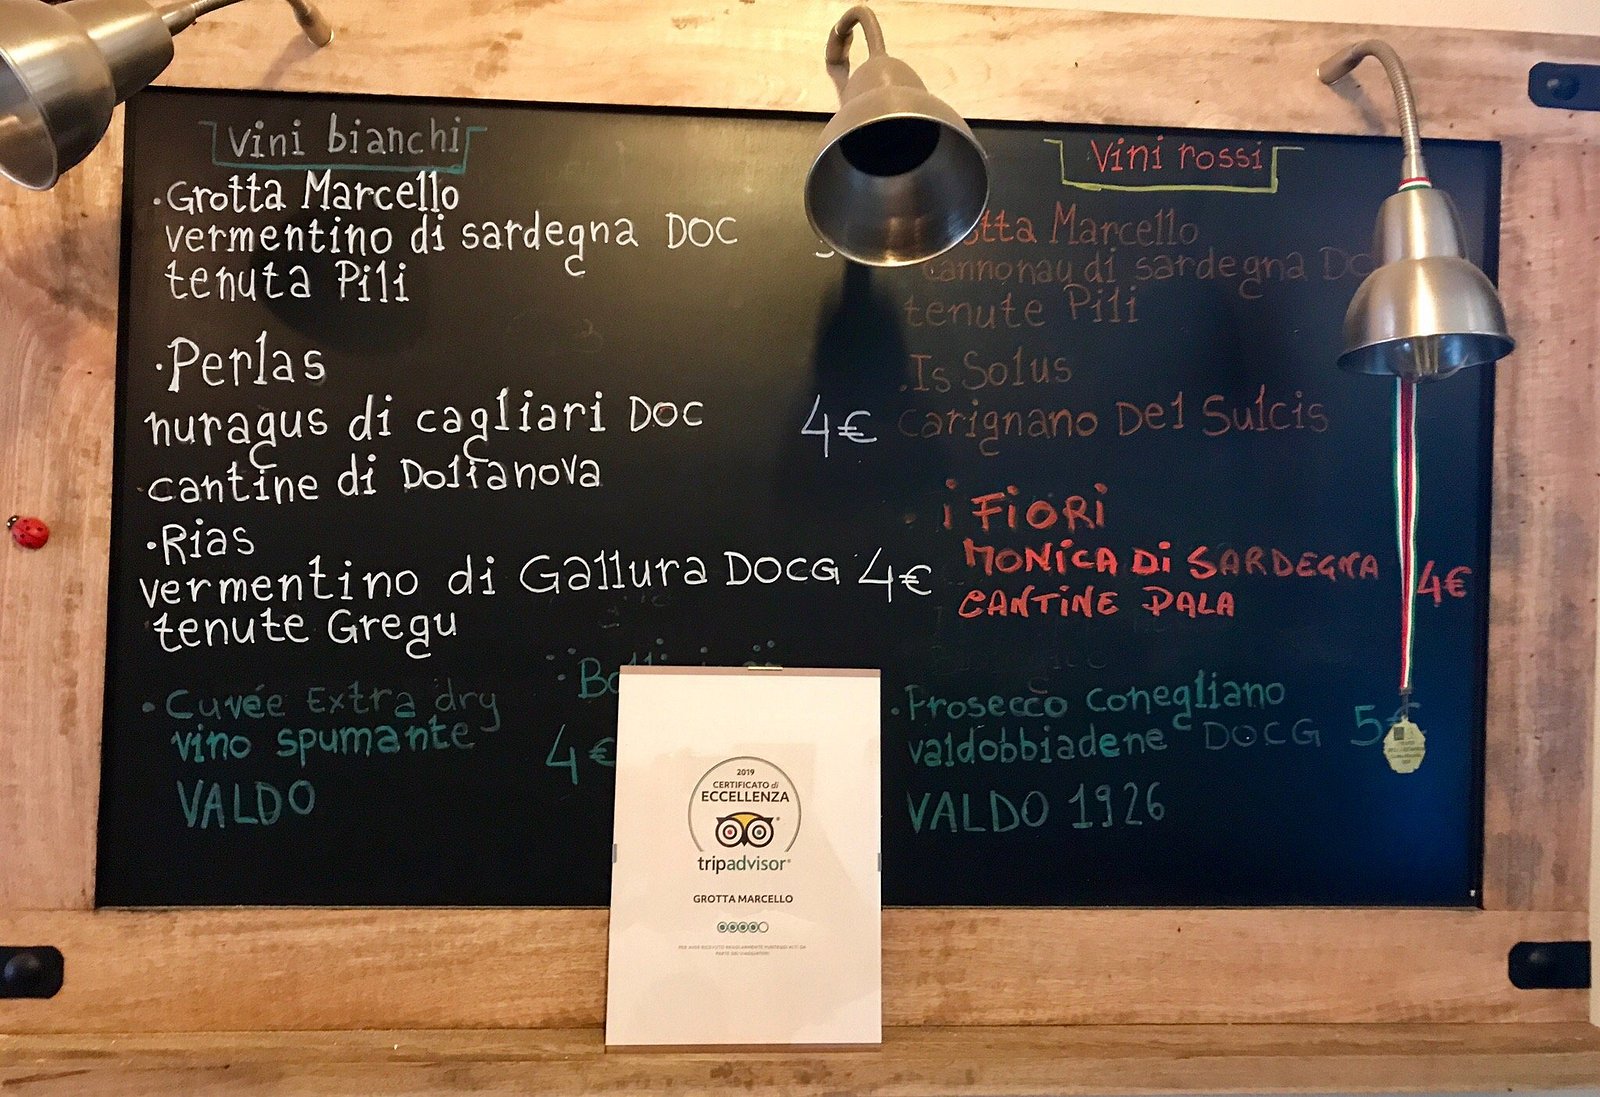 Vini bianchi
· Grotta Marcello
vermentino di sardegna DOC
tenuta Pili
· Perlas
nuragus di cagliari DOC 4€
cantine di Dolianova
· Rias
vermentino di Gallura DOCG 4€
tenute Gregu
· Cuvée Extra dry
vino spumante 4€
VALDO
Vini rossi
Marcello
cannonau di sardegna
tenute Pili
· Is Solus
carignano Del Sulcis
· i FiORi
MONiCA Di SARDEGNA 4€
CANTiNE PALA
· Prosecco conegliano
valdobbiadene DOCG 5€
VALDO 1926
2019
CERTIFICATO di
ECCELLENZA
tripadvisor®
GROTTA MARCELLO
PER AVER RICEVUTO REGOLARMENTE PUNTEGGI ALTI DA
PARTE DEI VIAGGIATORI